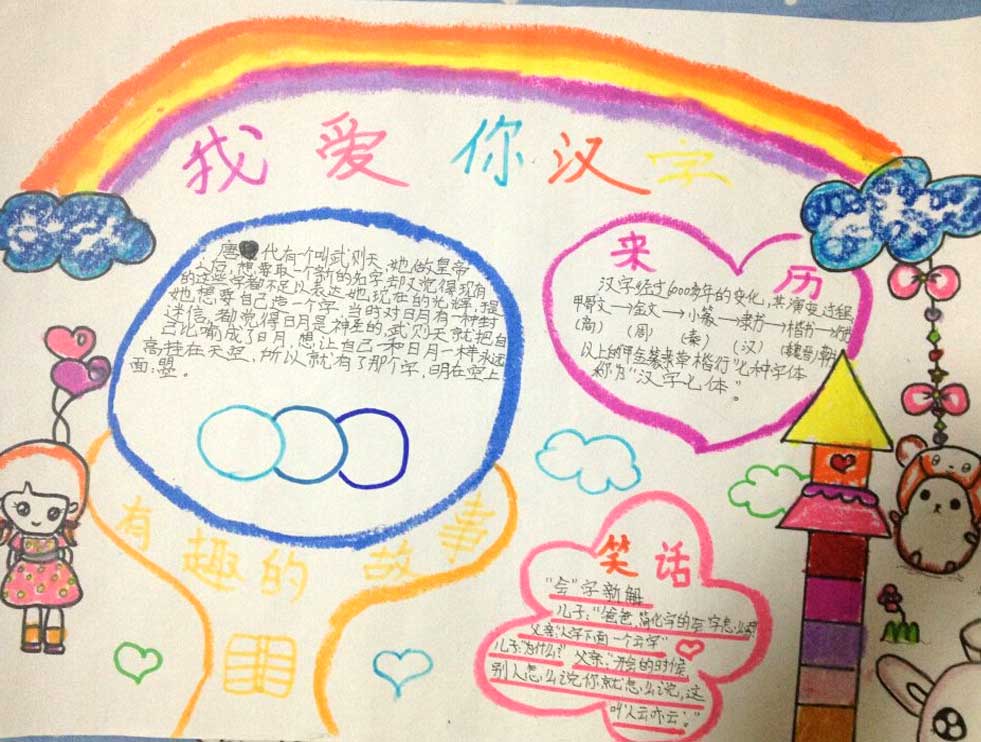 我爱你汉字
唐代有个叫武则天,她做皇帝
之后,想要取一个新的名字,却又觉得现有
的这些字都不足以表达她现在的光辉,于是
她想要自己造一个字,当时对日月有一种封
迷信,都觉得日月是神圣的,武则天就把自
己比喻成了日月,想让自己和日月一样永远
高挂在天空,所以就有了那个字,日月在空上
面:曌。
有趣的故事
来历
汉字经过6000多年的变化,其演变过程
甲骨文→金文→小篆→隶书→楷书→行书
(商) (周) (秦) (汉) (魏晋)
以上的"甲金篆隶草楷行"七种字体
称为"汉字七体"。
笑话
"会"字新解
儿子:"爸爸,简化字的会字怎么
父亲:人字下面一个云字"
儿子:为什么? 父亲:"开会的时候
别人怎么说你就怎么说,这
叫人云亦云。"